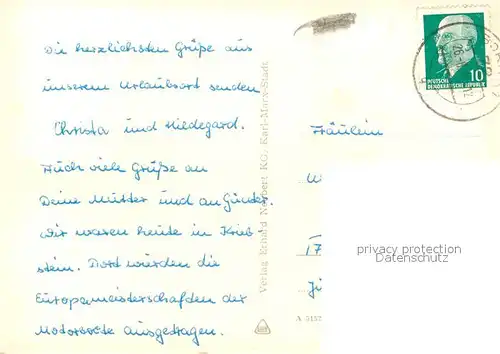 Die herzlichsten Grüße aus
unserem Urlaubsort senden
Christa und Hildegard.
Auch viele Grüße an
Deine Mutter und an Günter.
Wir waren heute in Krieb
stein. Dort wurden die
Europameisterschaften der
Motorboote ausgetragen.
Verlag Erhard Neubert KG, Karl-Marx-Stadt
10
DEUTSCHE
DEMOKRATISCHE REPUBLIK
Fräulein
17
privacy protection
Datenschutz